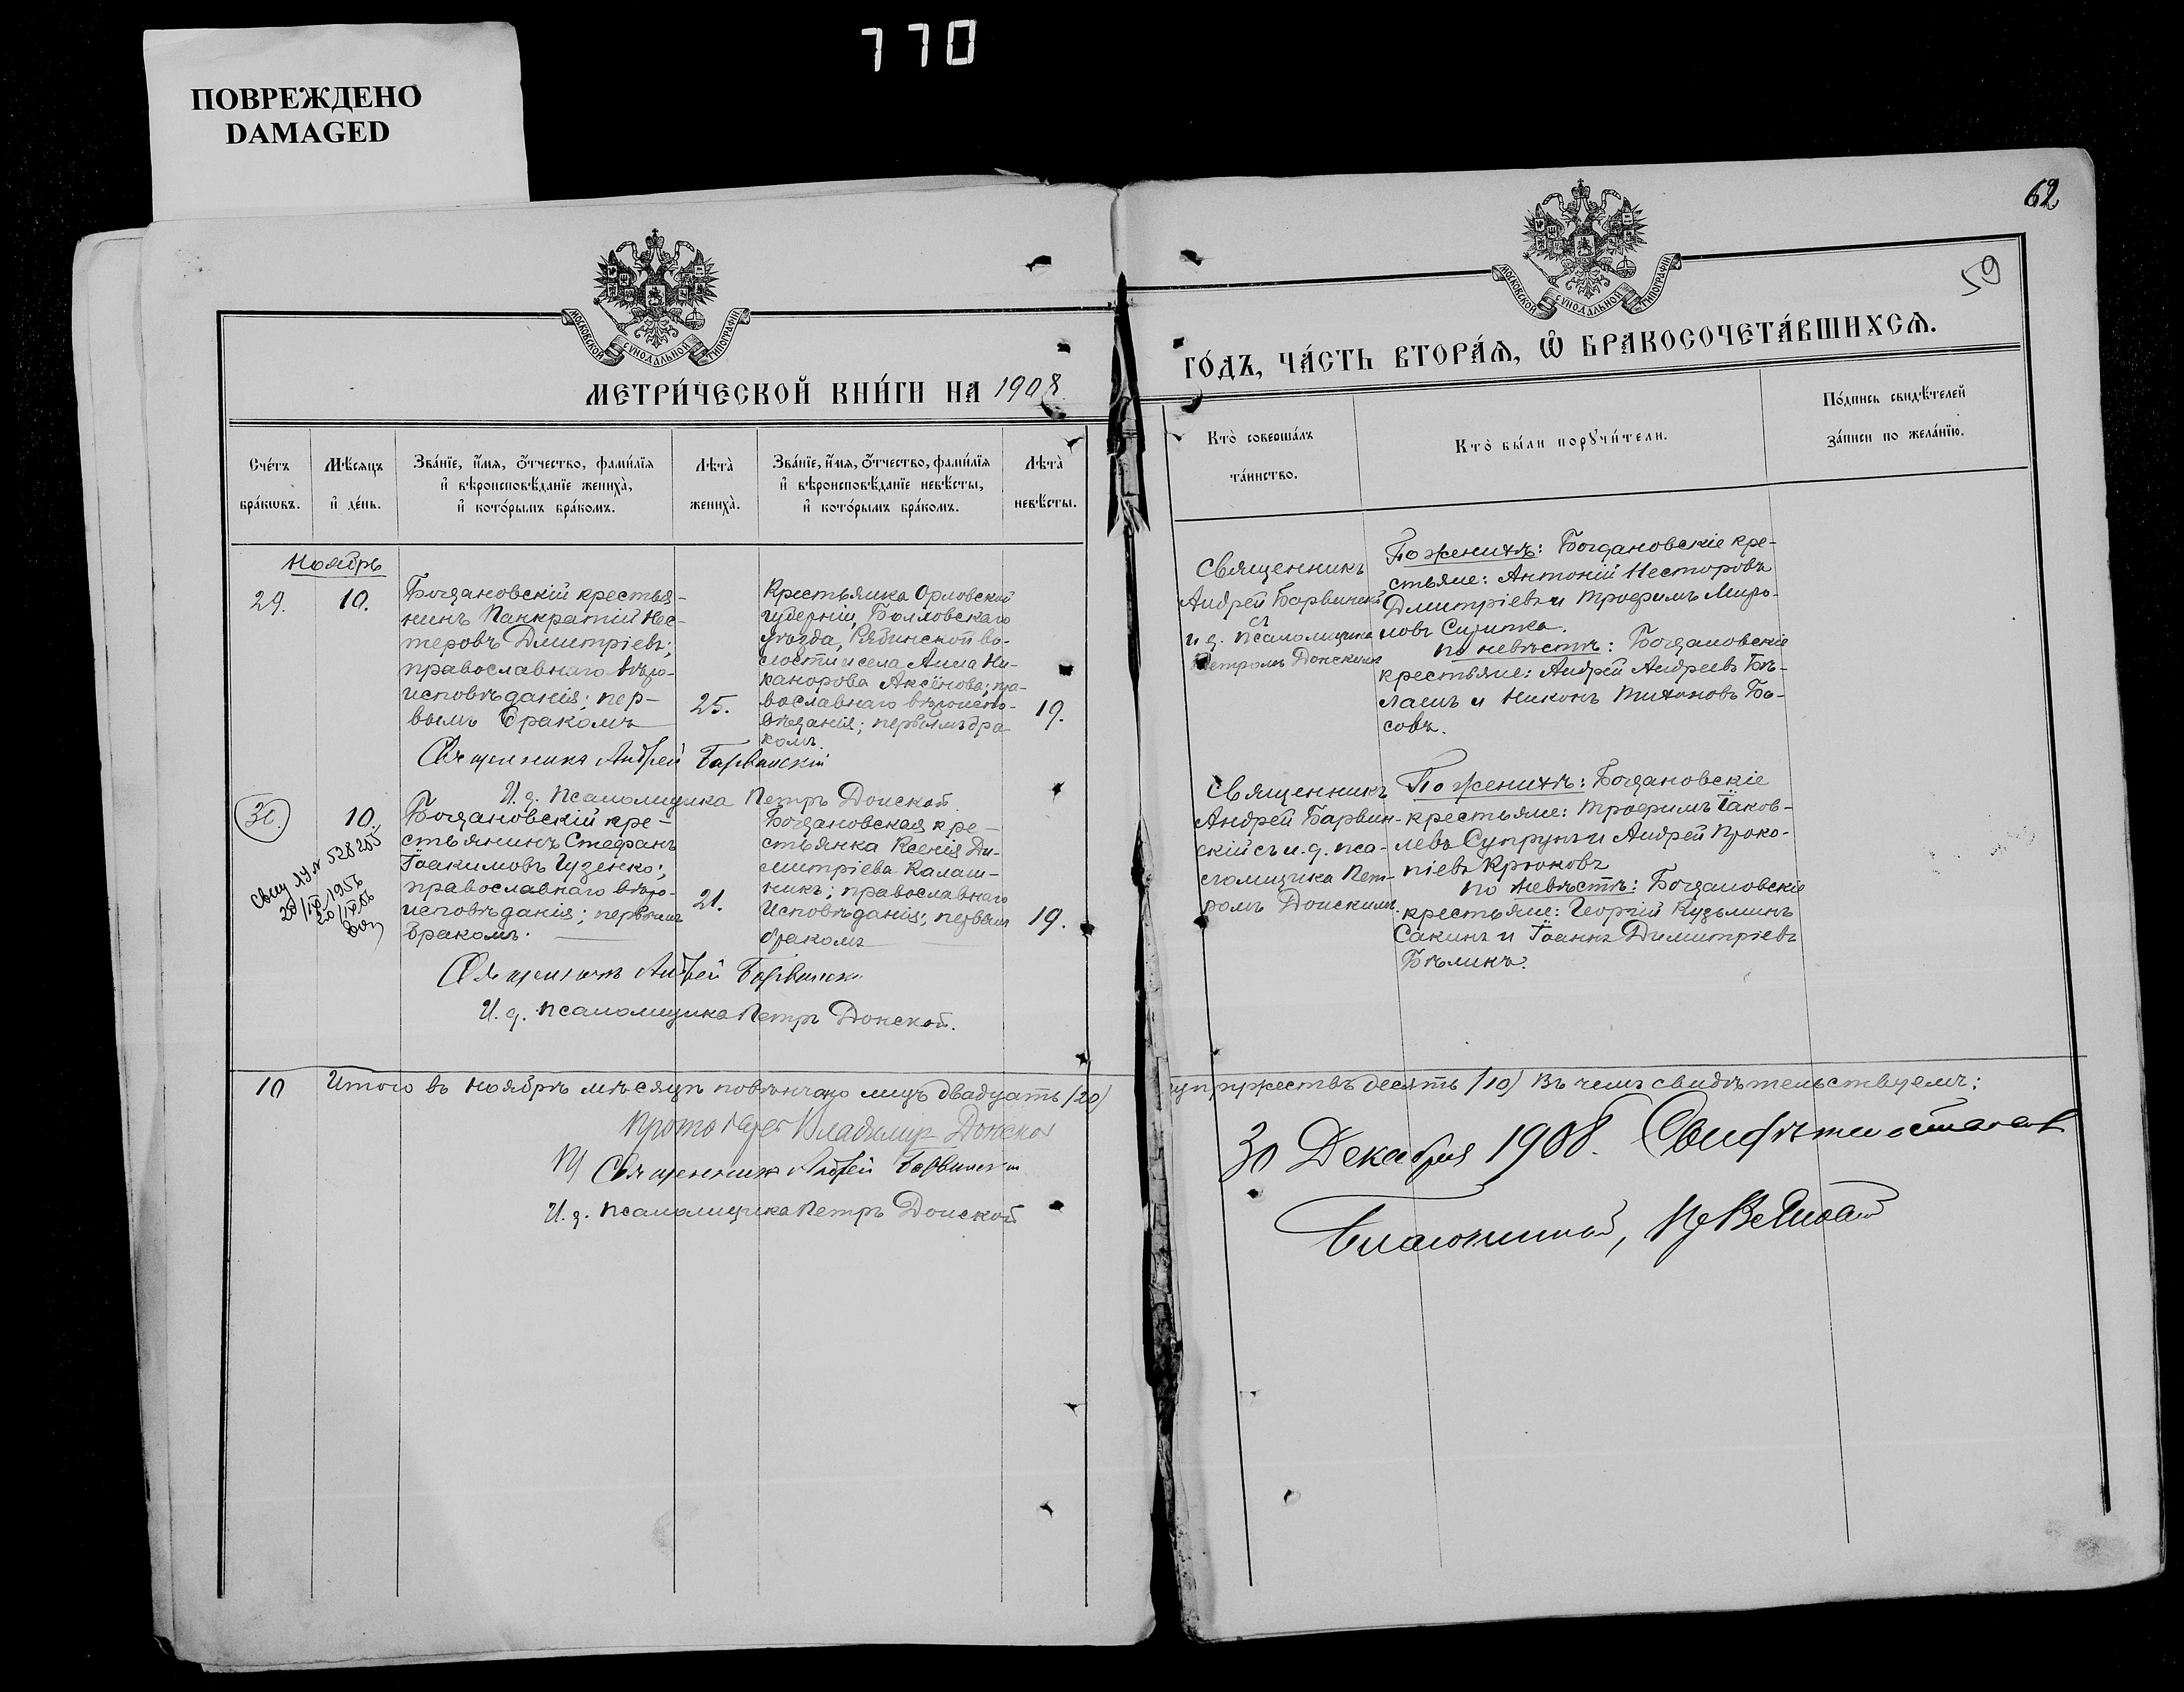 770
ПОВРЕЖДЕНО
DAMAGED
62
59
МОСКОВСКОЙ СѴНОДАЛЬНОЙ ТИПОГРАФІИ
МОСКОВСКОЙ СѴНОДАЛЬНОЙ ТИПОГРАФІИ
МЕТРИ́ЧЕСКОЙ КНИ́ГИ НА 1908
ГО́ДЪ, ЧА́СТЬ ВТОРА́Ѧ, Ѡ҆ БРАКОСОЧЕТА́ВШИХСѦ.
Сче́тъ
бра́кωвъ.
Мѣ́сяцъ
и҆ де́нь.
Зва́нїе, и҆́мя, о҆́тчество, фами́лїя
и҆ вѣроисповѣ́данїе жениха̀,
и҆ кото́рымъ бра́комъ.
Лѣта̀
жениха̀.
Зва́нїе, и҆́мя, о҆́тчество, фами́лїя
и҆ вѣроисповѣ́данїе невѣ́сты,
и҆ кото́рымъ бра́комъ.
Лѣта̀
невѣ́сты.
Кто̀ соверша́лъ
та́инство.
Кто̀ бы́ли порꙋчи́тели.
По́дпись свидѣ́телей
за́писи по жела́нїю.
Ноябрь
29.
10.
Богдановскій крестья-
нинъ Панкратій Нес-
теровъ Дмитріевъ;
православнаго вѣро-
исповѣданія; пер-
вымъ бракомъ
25.
Крестьянка Орловской
губерніи, Болховскаго
уѣзда, Рябинской во-
лости и села Анна Ни-
канорова Аксёнова; пра-
вославнаго вѣроиспо-
вѣданія; первымъ бра-
комъ.
19.
Священникъ Андрей Барвинскій
И. д. псаломщика Петръ Донской.
Священникъ
Андрей Барвинскій
съ
и. д. псаломщика
Петромъ Донскимъ
По женихѣ: Богдановскіе кре-
стьяне: Антоній Несторовъ
Дмитріевъ и Трофимъ Миро-
новъ
по невѣстѣ: Богдановскіе
крестьяне: Андрей Андреевъ Бѣ-
лашъ и Никонъ Тихоновъ Бо-
совъ.
30.
10.
528205
1956
Богдановскій кре-
стьянинъ Стефанъ
Іоакимовъ Цузенко;
православнаго вѣро-
исповѣданія; первымъ
бракомъ.
21.
Богдановская кре-
стьянка Ксенія Ди-
митріева Калаш-
никъ; православнаго
исповѣданія; первымъ
бракомъ
19.
Священникъ Андрей Барвинскій
И. д. псаломщика Петръ Донской.
Священникъ
Андрей Барвин-
скій съ и. д. пса-
ломщика Пет-
ромъ Донскимъ.
По женихѣ: Богдановскіе
крестьяне: Трофимъ Іаков-
левъ Супрунъ и Андрей Проко-
піевъ Крюковъ
по невѣстѣ: Богдановскіе
крестьяне: Георгій Кузьминъ
Сакинъ и Іоаннъ Димитріевъ
Бѣликъ.
10
Итого въ ноябрѣ мѣсяцѣ повѣнчано лицъ двадцать /20/
супружествъ десять /10/ Въ чемъ свидѣтельствуемъ:
Протоіерей Владимир Донской
Священникъ Андрей Барвинскій
И. д. псаломщика Петръ Донской
30 Декабря 1908. Свидѣтельствовалъ
Благочинный,